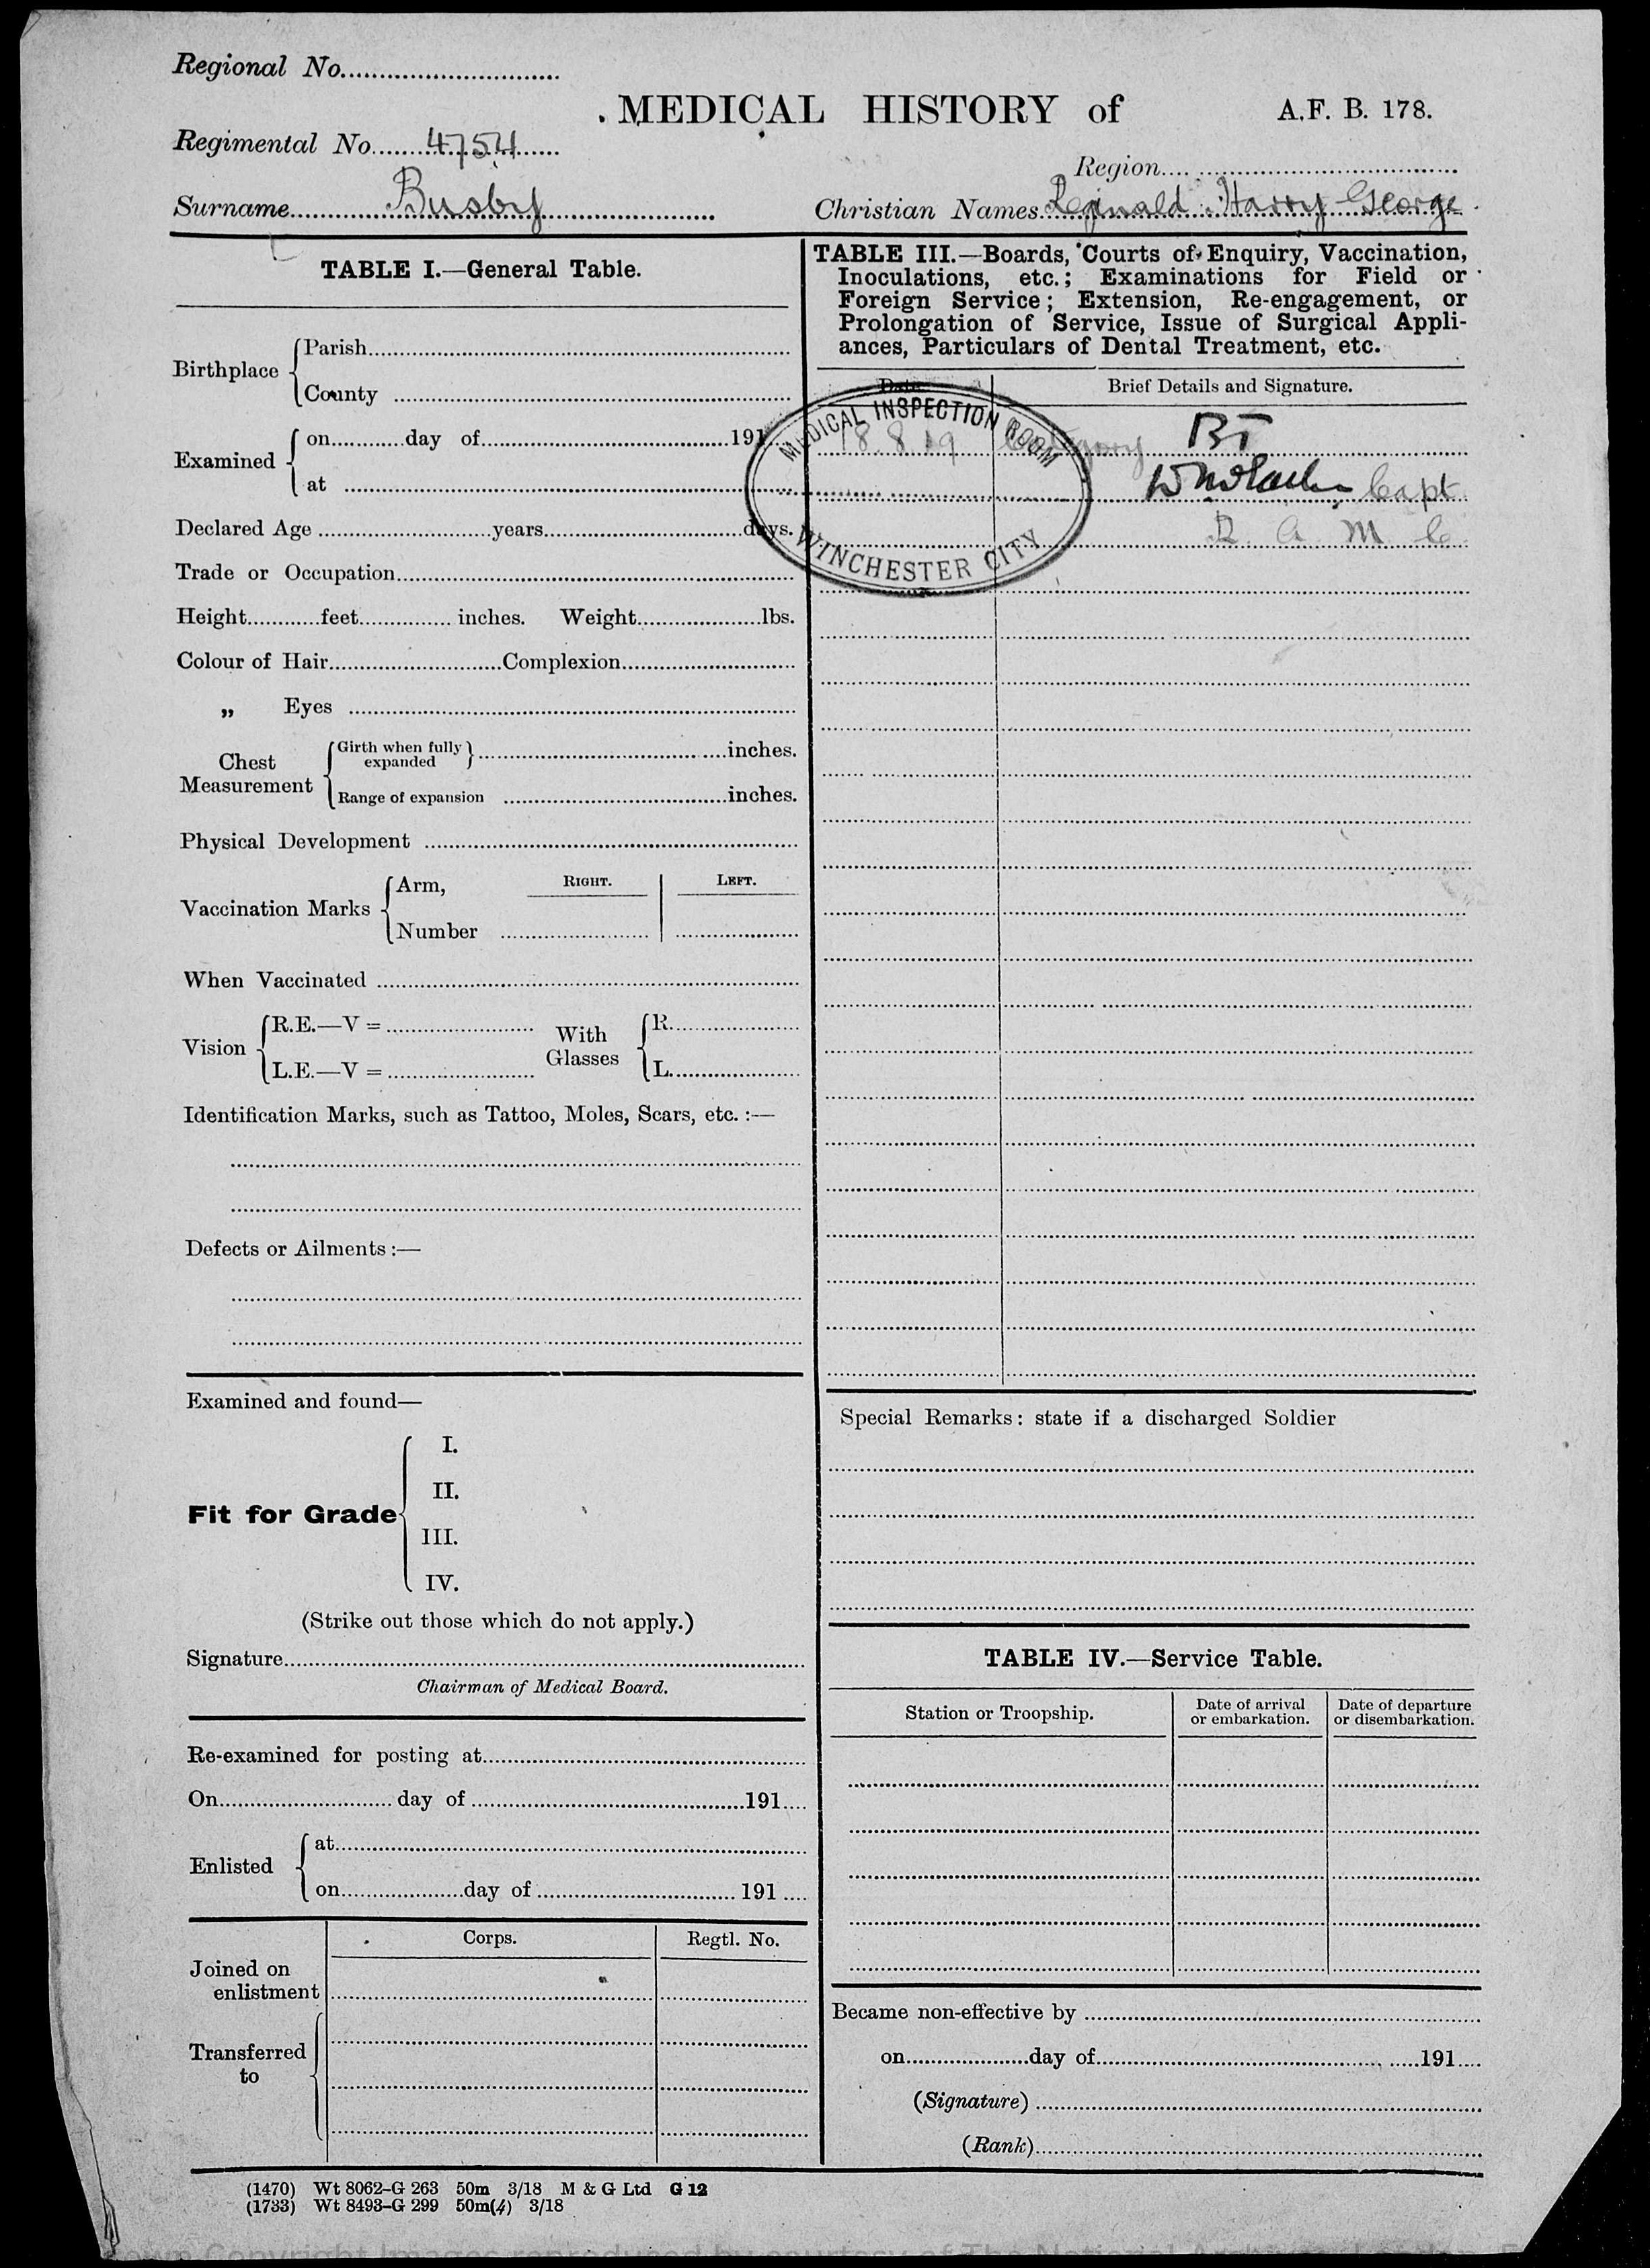 Regional No.
MEDICAL HISTORY of
A.F. B. 178.
Regimental No. 4754
Region
Surname Busby
Christian Names Reginald Harry George
TABLE I.—General Table.
Birthplace
Parish
County
Examined
on day of 191
at
Declared Age years days.
Trade or Occupation
Height feet inches. Weight lbs.
Colour of Hair Complexion
„ Eyes
Chest Measurement
Girth when fully expanded inches.
Range of expansion inches.
Physical Development
Vaccination Marks
Arm, RIGHT. LEFT.
Number
When Vaccinated
Vision
R.E.—V =
L.E.—V =
With Glasses
R.
L.
Identification Marks, such as Tattoo, Moles, Scars, etc. :—
Defects or Ailments :—
Examined and found—
Fit for Grade
I.
II.
III.
IV.
(Strike out those which do not apply.)
Signature
Chairman of Medical Board.
Re-examined for posting at
On day of 191
Enlisted
at
on day of 191
Corps. Regtl. No.
Joined on
enlistment
Transferred
to
TABLE III.—Boards, Courts of Enquiry, Vaccination,
Inoculations, etc.; Examinations for Field or
Foreign Service; Extension, Re-engagement, or
Prolongation of Service, Issue of Surgical Appli-
ances, Particulars of Dental Treatment, etc.
Date Brief Details and Signature.
MEDICAL INSPECTION ROOM
18.8.19 Category B I
Capt
R A M C
WINCHESTER CITY
Special Remarks: state if a discharged Soldier
TABLE IV.—Service Table.
Station or Troopship.
Date of arrival
or embarkation.
Date of departure
or disembarkation.
Became non-effective by
on day of 191
(Signature)
(Rank)
(1470) Wt 8062-G 263 50m 3/18 M & G Ltd G 12
(1733) Wt 8493-G 299 50m(4) 3/18